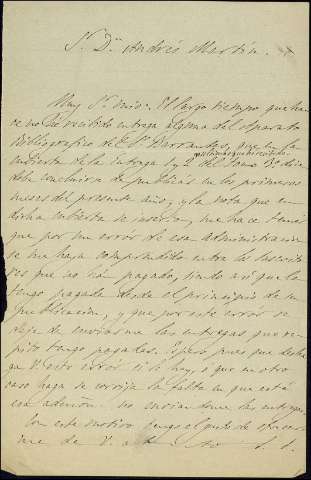 Sr. Dn. Andrés Martín.
Muy Sr. mio: El largo tiempo que hace
no he recibido entrega alguna del Aparato
Bibliografico de el Sr. Barrantes, que en la
cubierta de la entrega 1 y 2 del tomo 3º
debia concluirse de publicar en los primeros
meses del presente año, y la nota que en
dicha cubierta se inserta, me hace temer
que por un error de esa administracion
se me haya comprendido entre los suscrito
res que no han pagado, siendo así que la
tengo pagada desde el principio de su
publicacion, y que por este error se
deje de enviarme las entregas que re-
pito tengo pagadas. Espero pues que desha
ga V. este error si le hay, o que en otro
caso haga se corrija la falta en que está
esa admón. no enviandome las entregas.
Con este motivo tengo el gusto de ofrecer
me de V. S. S.